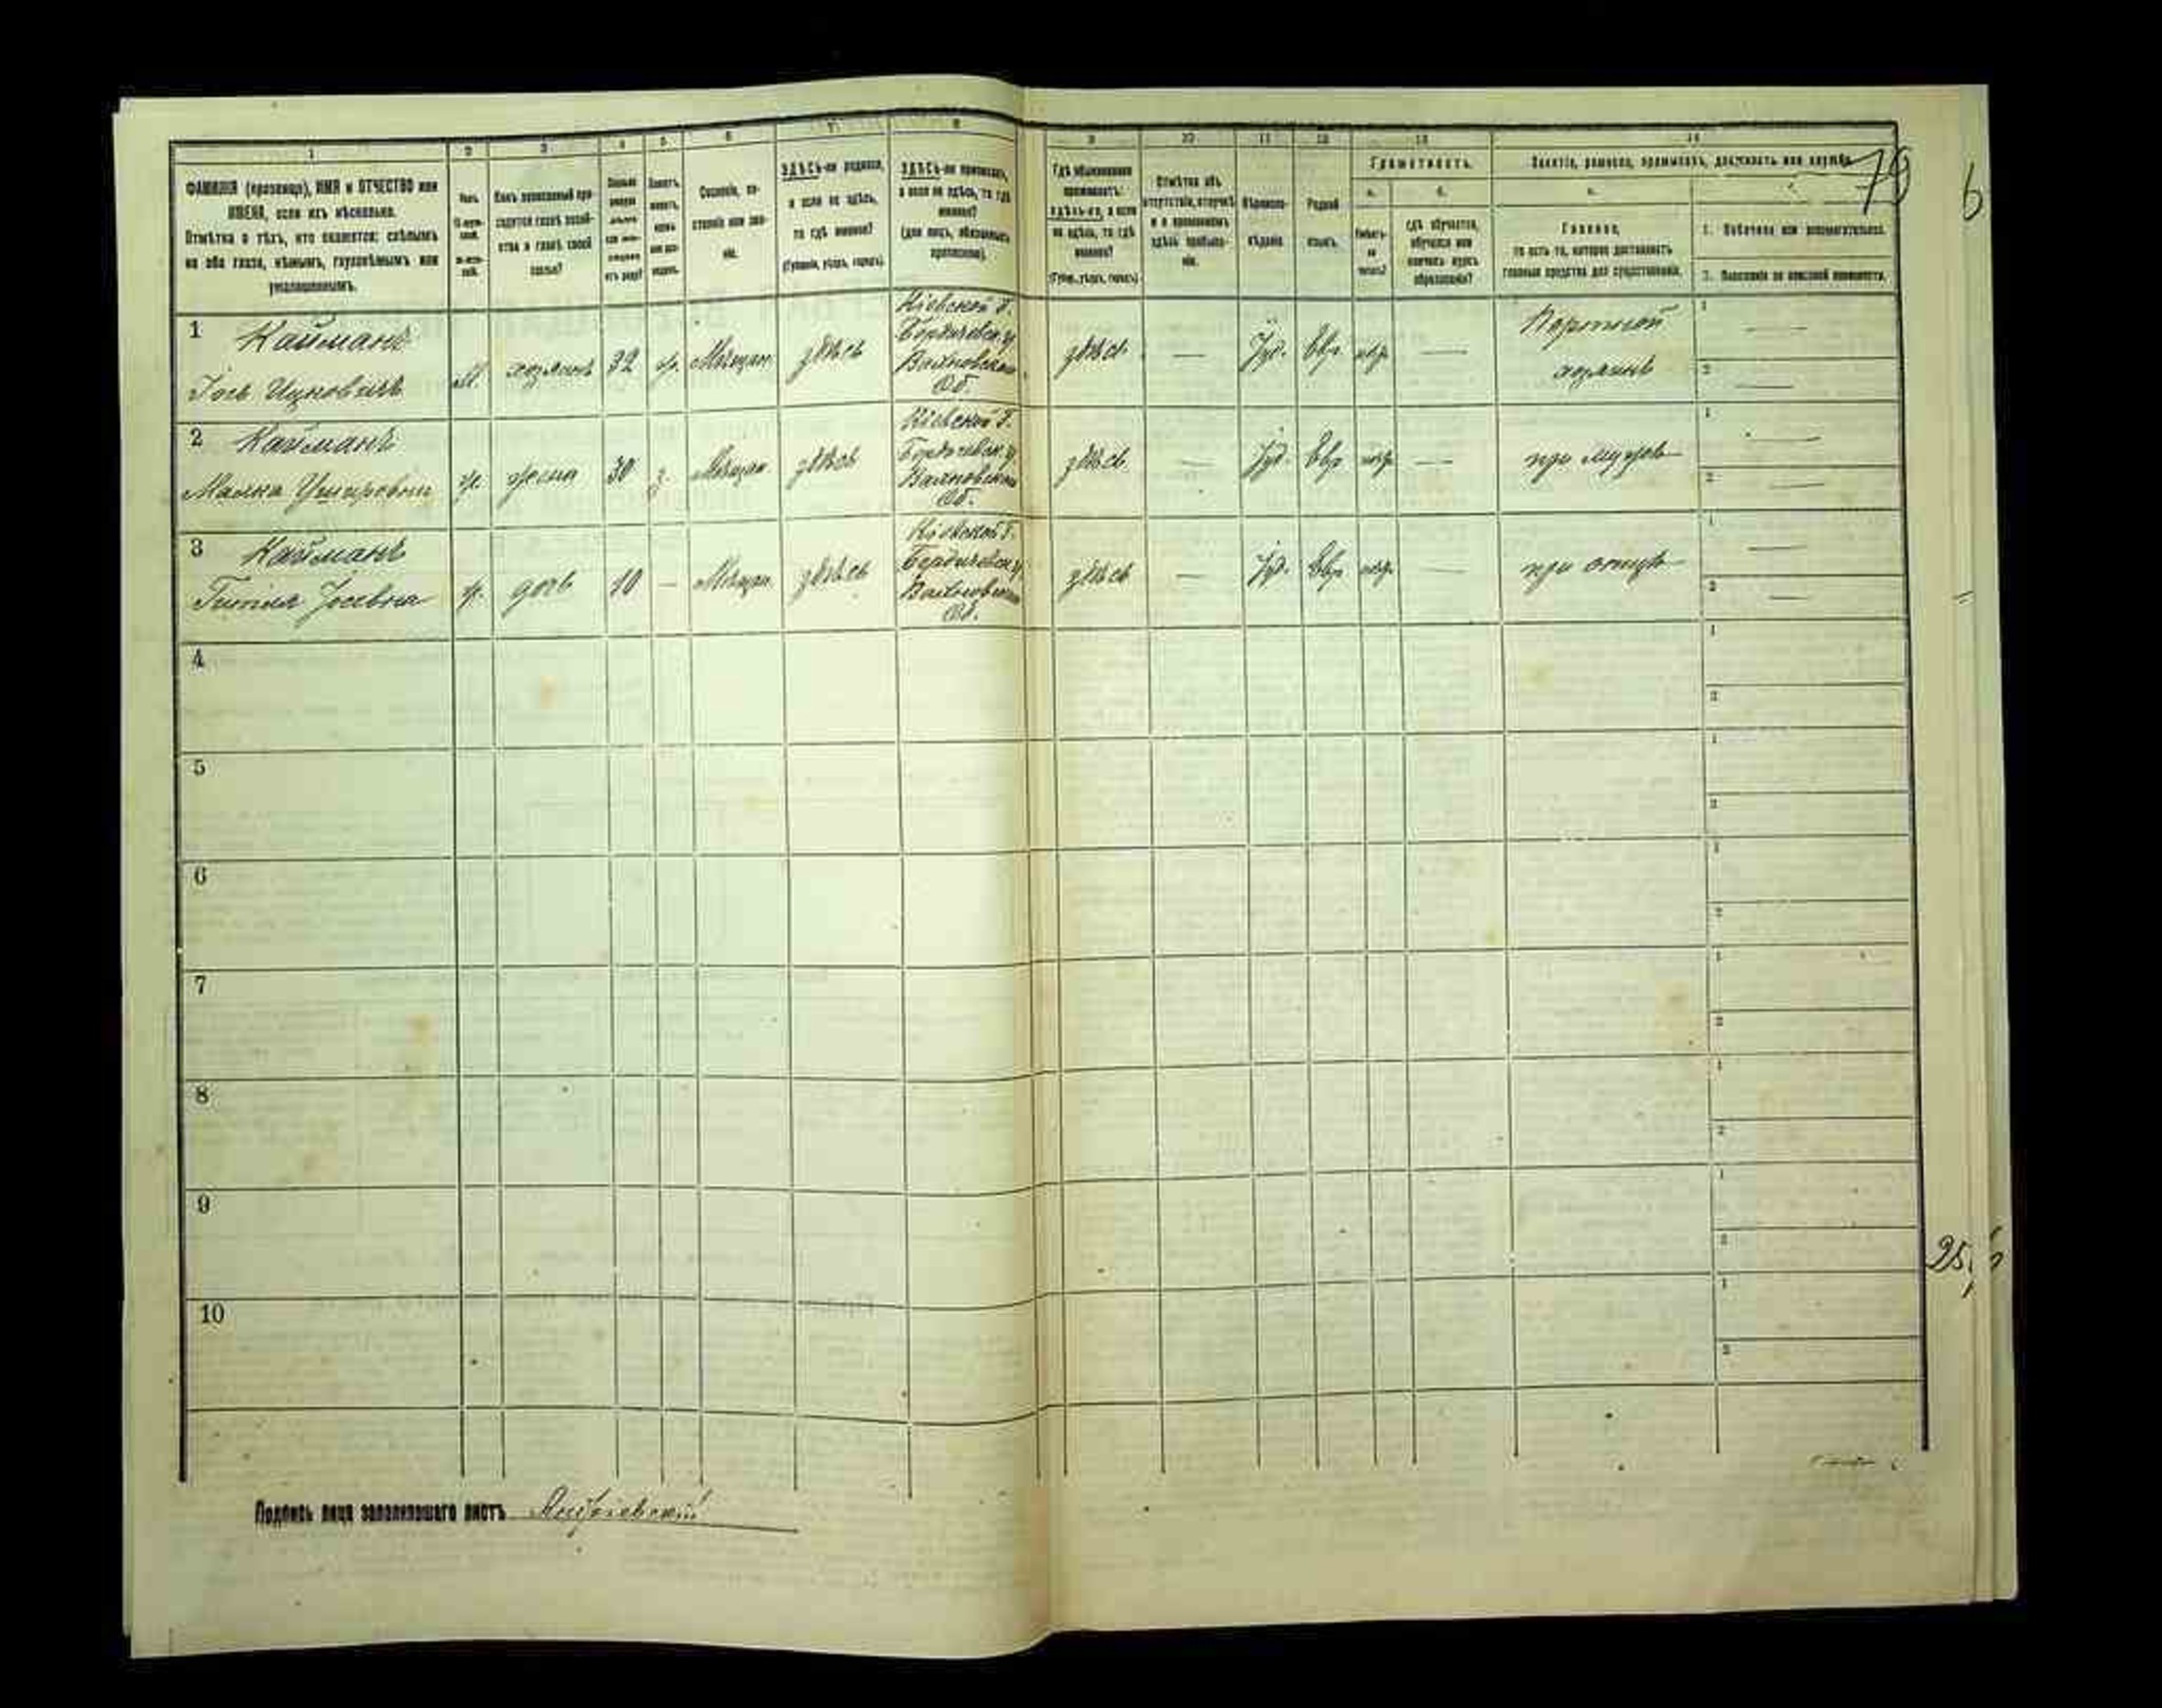 1 2 3 4 5 6 7 8 9 10 11 12 13 14
ФАМИЛІЯ (прозвище), ИМЯ и ОТЧЕСТВО или
ИМЕНА, если ихъ нѣсколько.
Отмѣтка о тѣхъ, кто окажется: слѣпымъ
на оба глаза, нѣмымъ, глухонѣмымъ или
умалишеннымъ.
Какъ записанный при-
ходится главѣ хозяй-
ства и главѣ своей
семьи?
Сословіе, со-
стояніе или зва-
ніе.
ЗДѢСЬ-ли родился,
а если не здѣсь,
то гдѣ именно?
(Губернія, уѣздъ, городъ).
ЗДѢСЬ-ли приписанъ,
а если не здѣсь, то гдѣ
именно?
(для лицъ, обязанныхъ
припиской).
Гдѣ обыкновенно
проживаетъ:
здѣсь-ли, а если
не здѣсь, то гдѣ
именно?
(Губер., уѣздъ, городъ)
Отмѣтка объ
отсутствіи, отлучкѣ
и о временномъ
здѣсь пребыва-
ніи.
Вѣроиспо-
вѣданіе.
Родной
языкъ.
Грамотность.
а. б.
Умѣетъ-
ли
читать?
гдѣ обучается,
обучался или
кончилъ курсъ
образованія?
Занятіе, ремесло, промыселъ, должность или служба.
а.
Главное,
то есть то, которое доставляетъ
главныя средства для существованія.
1. Побочное или вспомогательное.
2. Положеніе по воинской повинности.
79
6
1 Кайманъ
Іось Ицковичъ
М. хозяинъ 32 ж. Мѣщан. здѣсь
Кіевской Г.
Бердичевск. у
Вахновской
Об.
здѣсь — Іуд. Евр. —
Портной
хозяинъ
1 —
2 —
2 Кайманъ
Малка
ж. жена 30 з. Мѣщан. здѣсь
Кіевской Г.
Бердичевск. у
Вахновской
Об.
здѣсь — Іуд. Евр —
при мужѣ
1 —
2 —
3 Кайманъ
Іосевна
ж. дочь 10 — Мѣщан. здѣсь
Кіевской Г.
Бердичевск. у
Вахновской
Об.
здѣсь — Іуд. Евр —
при отцѣ
1 —
2 —
4
1
2
5
1
2
6
1
2
7
1
2
8
1
2
9
1
2
10
1
2
25
Подпись лица заполнившаго листъ Андріевскій